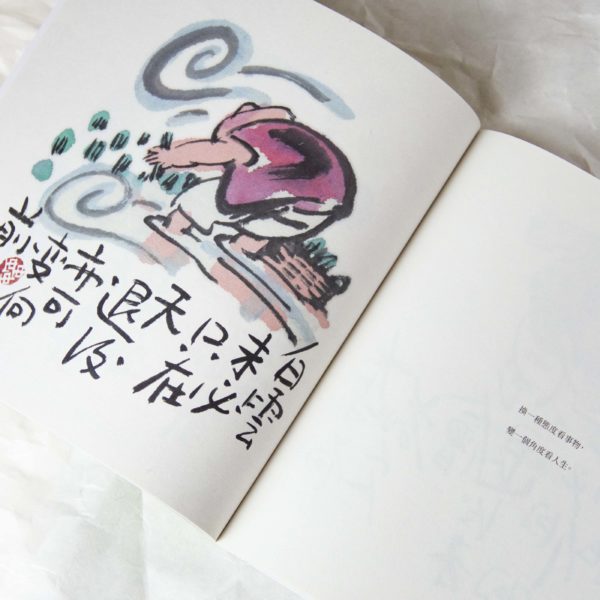 白雲
未必
只在
天
退後
亦可
變
前
換一種態度看事物，
變一個角度看人生。